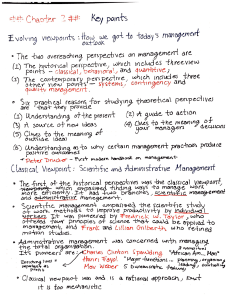 ## Chapter 2 ## Key points
Evolving viewpoints: How we got to today's management
outlook
• The two overarching perspectives on management are
(1) The historical perspective, which includes three view
points - classical, behavioral, and quantitative;
(2) The contemporary perspective, which includes three
other view points - systems, contingency and
quality-management.
• Six practical reasons for studying theoretical perspectives
are that they provide
(1) Understanding of the present (2) A guide to action
(3) A source of new ideas (4) Clues to the meaning of
your managers' decisions
(5) Clues to the meaning of
outside
(6) Understanding as to why certain management practices produce
positive outcomes
• Peter Drucker - First modern handbook on management
Classical Viewpoint: Scientific and Administrative Management
• The first of the historical perspectives was the classical viewpoint,
which emphasized finding ways to manage work
more efficiently. It had two branches, scientific management
and administrative management.
• Scientific management emphasized the scientific study
of work methods to improve productivity by individual
workers. It was pioneered by Frederick W. Taylor, who
offered four principles of science that could be applied to
management, and Frank and Lillian Gilbreth, who refined
motion studies.
• Administrative management was concerned with managing
the total organization.
Its pioneers were Charles Clinton Spaulding
Henri Fayol
Max Weber 5 bureaucratic
• Classical viewpoint was and is a rational approach, but
it is too mechanistic